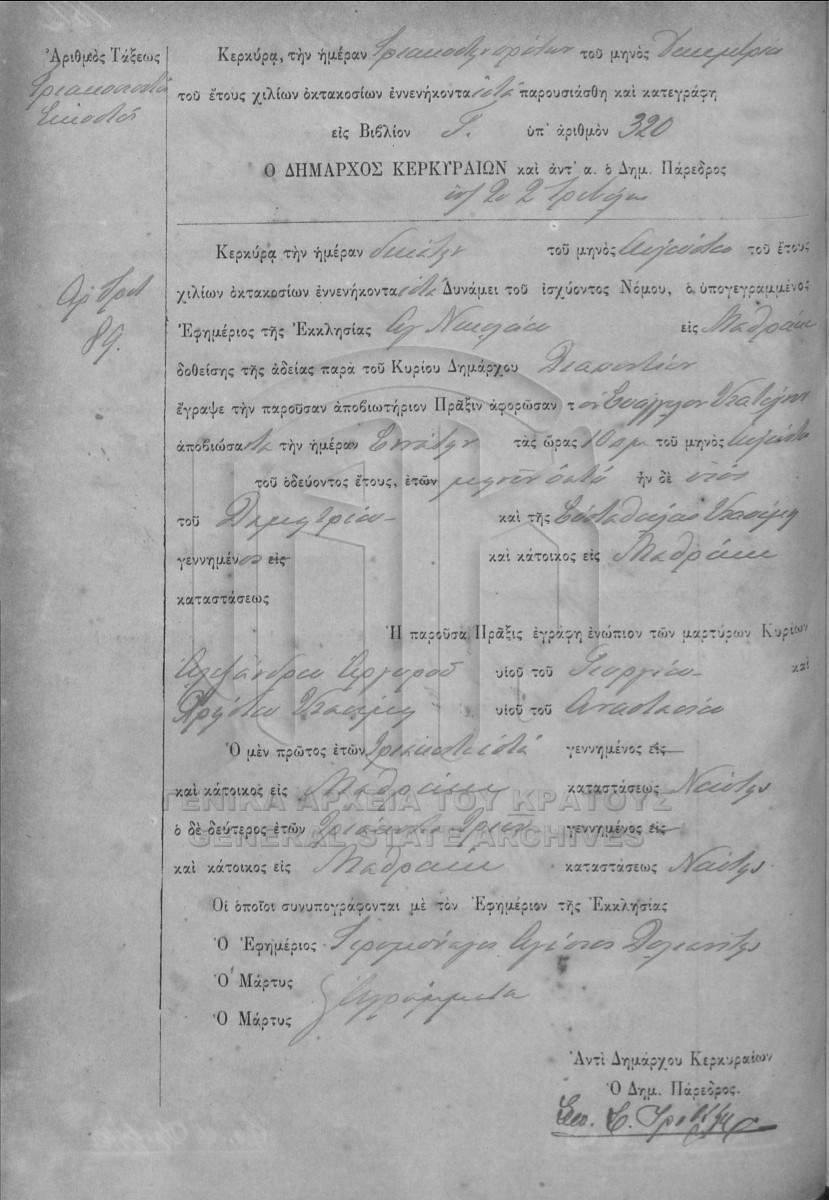 Ἀριθμὸς Τάξεως
Τριακοσιοστὸς
Εἰκοστός
Κερκύρᾳ, τὴν ἡμέραν Τριακοστὴν πρώτην τοῦ μηνὸς Δεκεμβρίου
τοῦ ἔτους χιλίων ὀκτακοσίων ἐννενήκοντα ἑπτά παρουσιάσθη καὶ κατεγράφη
εἰς Βιβλίον Γ. ὑπ' ἀριθμὸν 320
Ο ΔΗΜΑΡΧΟΣ ΚΕΡΚΥΡΑΙΩΝ καὶ ἀντ' α. ὁ Δημ. Πάρεδρος
Κερκύρᾳ τὴν ἡμέραν δεκάτην τοῦ μηνὸς Αὐγούστου τοῦ ἔτους
χιλίων ὀκτακοσίων ἐννενήκοντα ἑπτά Δυνάμει τοῦ ἰσχύοντος Νόμου, ὁ ὑπογεγραμμένος
89.
Ἐφημέριος τῆς Ἐκκλησίας Ἁγ Νικολάου εἰς Μαθράκι
δοθείσης τῆς ἀδείας παρὰ τοῦ Κυρίου Δημάρχου Διαποντίων
ἔγραψε τὴν παροῦσαν ἀποβιωτήριον Πρᾶξιν ἀφορῶσαν τὸν Εὐάγγελον
ἀποβιώσαντα τὴν ἡμέραν Ἐννάτην τὰς ὥρας 10 πμ τοῦ μηνὸς Αὐγούστου
τοῦ ὁδεύοντος ἔτους, ἐτῶν μηνῶν ὀκτώ ἦν δὲ υἱός
τοῦ Δημητρίου καὶ τῆς Εὐσταθούλας
γεννημένος εἰς καὶ κάτοικος εἰς Μαθράκι
καταστάσεως
Ἡ παροῦσα Πρᾶξις ἐγράφη ἐνώπιον τῶν μαρτύρων Κυρίων
Ἀλεξάνδρου Ἀργυροῦ υἱοῦ τοῦ Γεωργίου καὶ
Χρήστου υἱοῦ τοῦ Ἀναστασίου
Ὁ μὲν πρῶτος ἐτῶν Τριάκοντα ἑπτά γεννημένος εἰς
καὶ κάτοικος εἰς Μαθράκι καταστάσεως Ναύτης
ΓΕΝΙΚΑ ΑΡΧΕΙΑ ΤΟΥ ΚΡΑΤΟΥΣ
ὁ δὲ δεύτερος ἐτῶν Τριάκοντα Τριῶν γεννημένος εἰς
GENERAL STATE ARCHIVES
καὶ κάτοικος εἰς Μαθράκι καταστάσεως Ναύτης
Οἱ ὁποῖοι συνυπογράφονται μὲ τὸν Ἐφημέριον τῆς Ἐκκλησίας
Ὁ Ἐφημέριος Ἱερομόναχος
Ὁ Μάρτυς
Ἀγράμματοι
Ὁ Μάρτυς
Ἀντὶ Δημάρχου Κερκυραίων
Ὁ Δημ. Πάρεδρος.